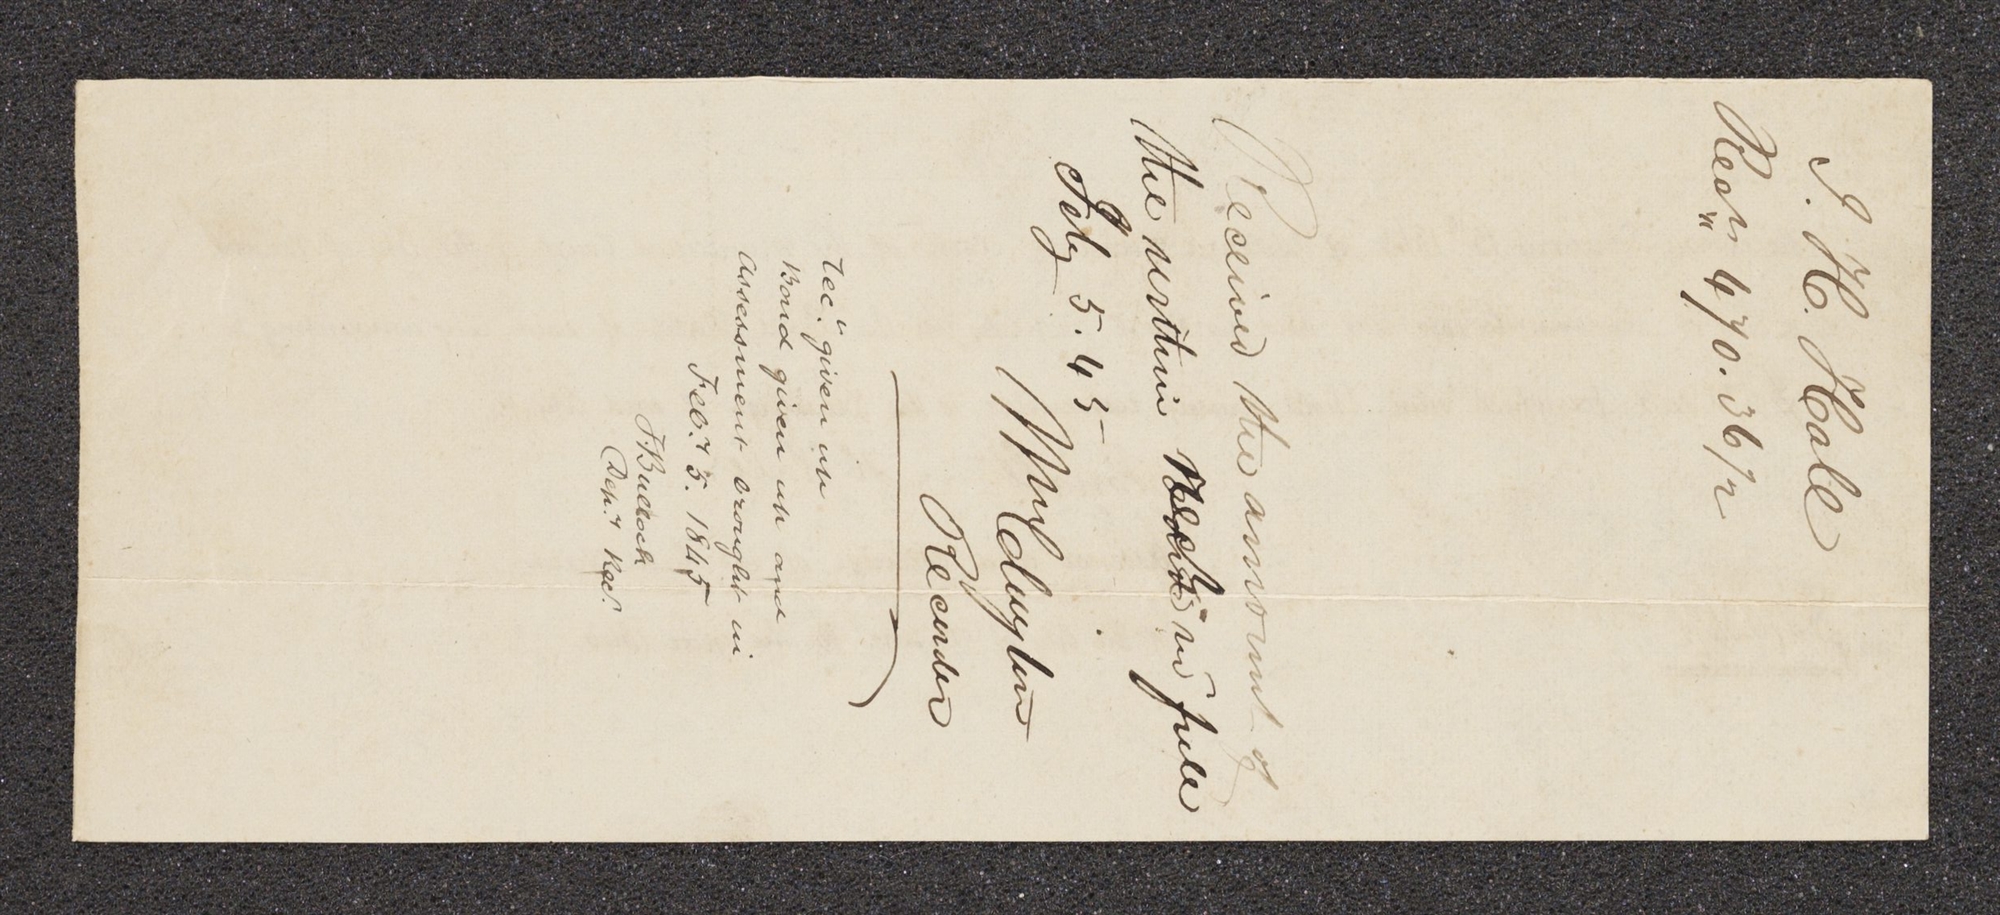 J. H. Hale
Rect. $ 470. 36/2
Received the amount of
the within Rect. in full
Feby 5. 45
Wm Clayton
Recorder
Rec. given up
Bond given up and
assessment brought in
Feb.y 5. 1845
J. Bullock
Dep.y Rec.